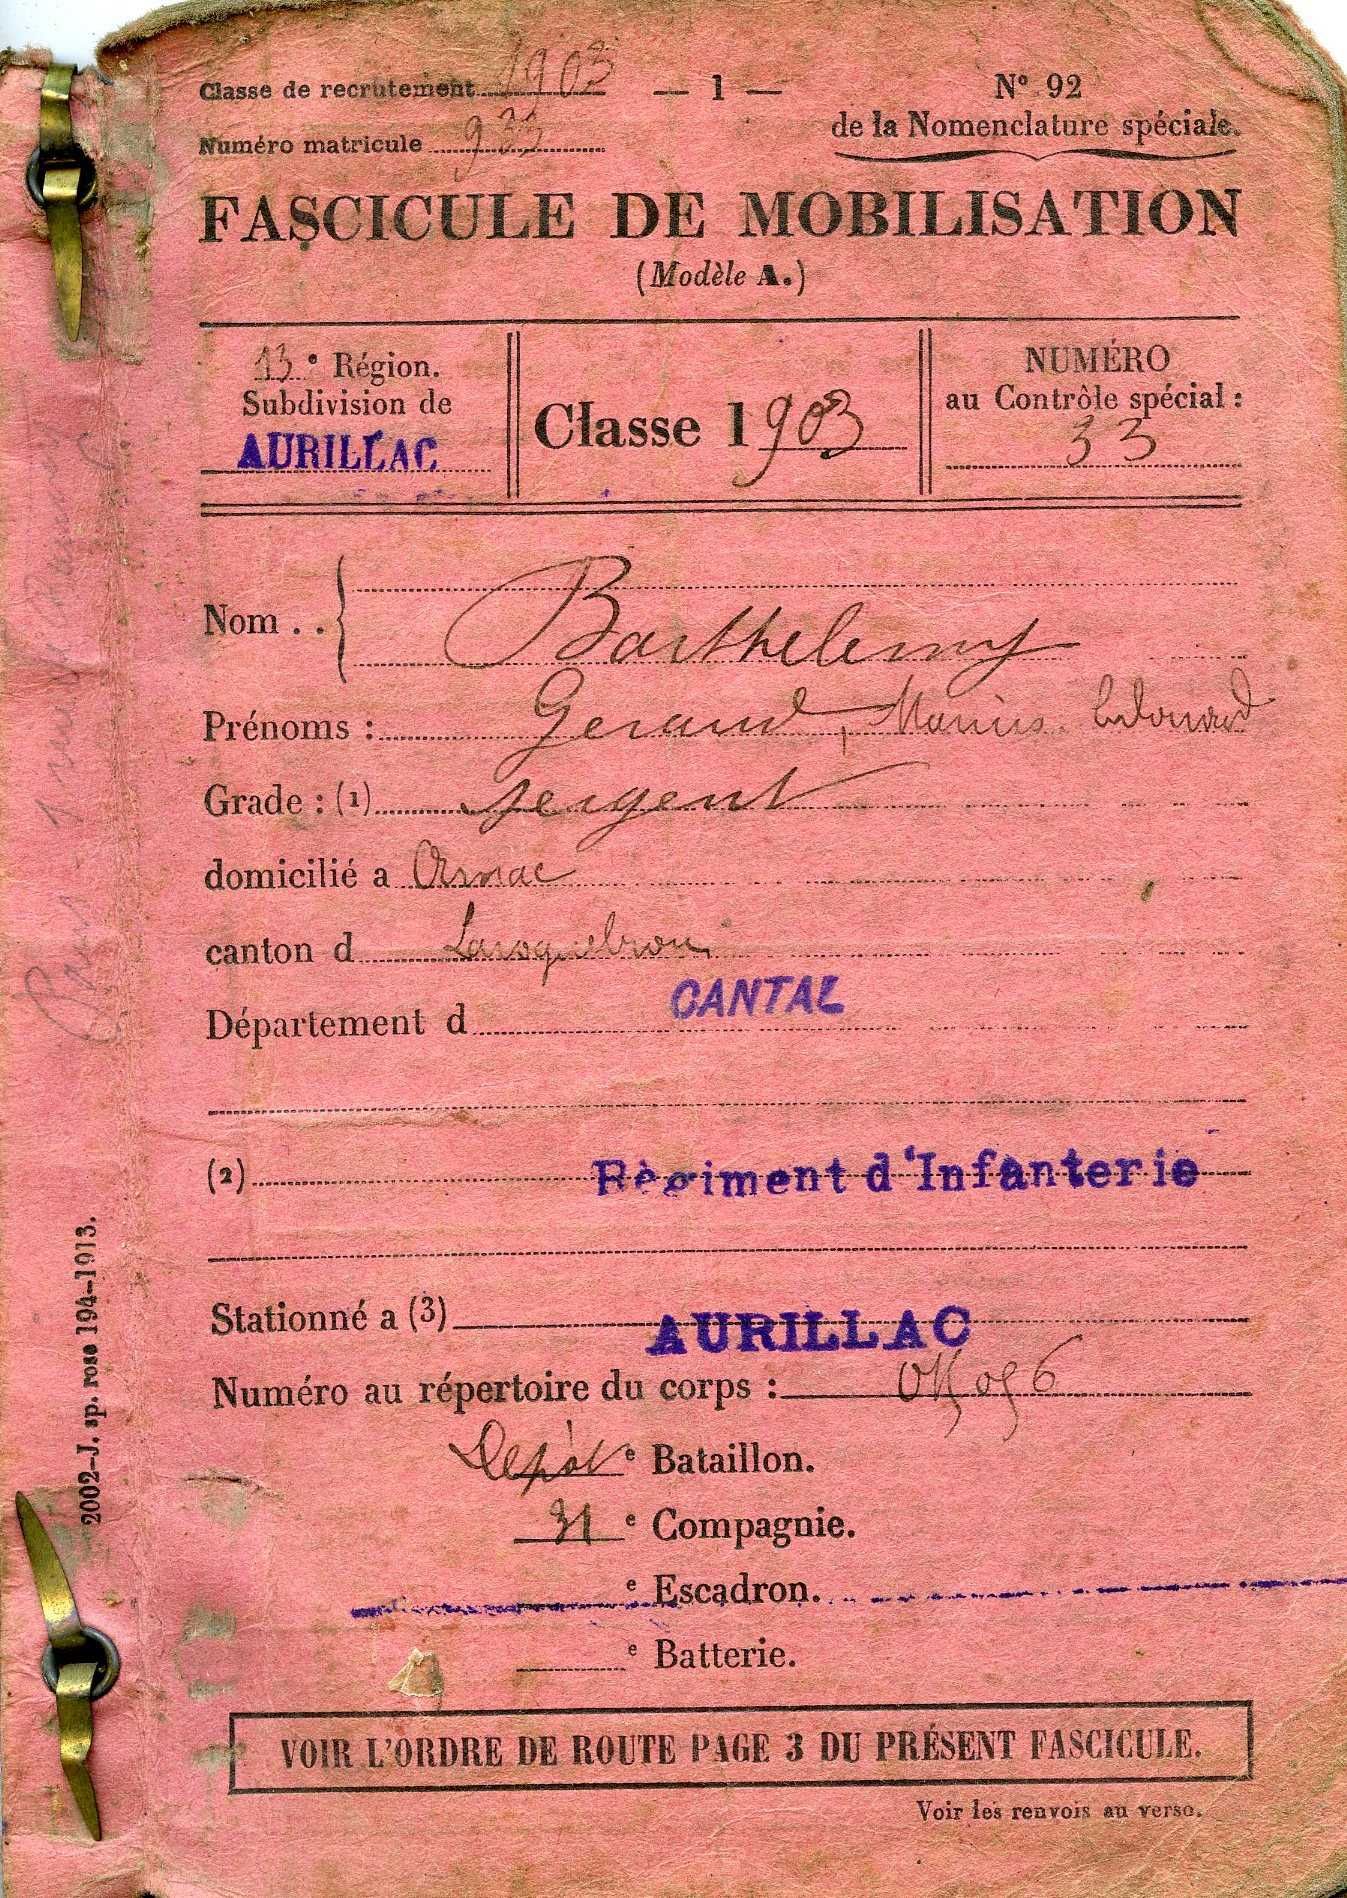 Classe de recrutement 1903
— 1 —
Nº 92
de la Nomenclature spéciale.
Numéro matricule 935
FASCICULE DE MOBILISATION
(Modèle A.)
13e Région.
Subdivision de
AURILLAC
Classe 1903
NUMÉRO
au Contrôle spécial :
33
Nom . . Barthelemy
Prénoms : Geraud, Marius Edouard
Grade : (1) sergent
domicilié a Arnac
canton d Laroquebrou
Département d CANTAL
(2) Régiment d'Infanterie
Stationné a (3) AURILLAC
Numéro au répertoire du corps :
Depôt e Bataillon.
31 e Compagnie.
e Escadron.
e Batterie.
VOIR L'ORDRE DE ROUTE PAGE 3 DU PRÉSENT FASCICULE.
Voir les renvois au verso.
2002-J. sp. rose 194-1913.